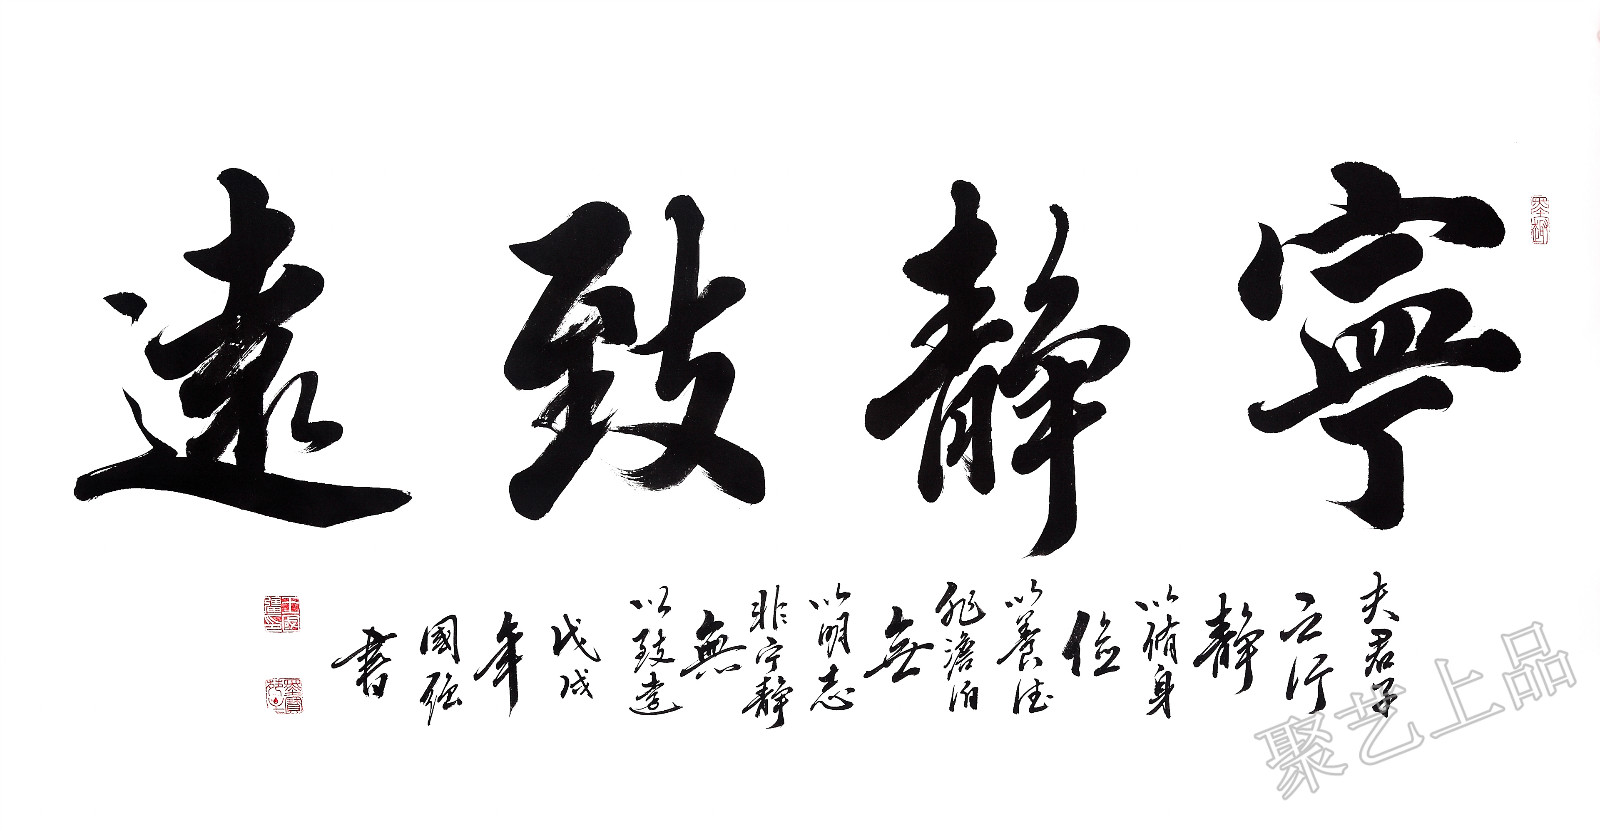 寧靜致遠
夫君子
之行
静
以脩身
俭
以養德
非澹泊
無
以明志
非宁静
無
以致遠
戊戌
年
國强
書
聚艺上品